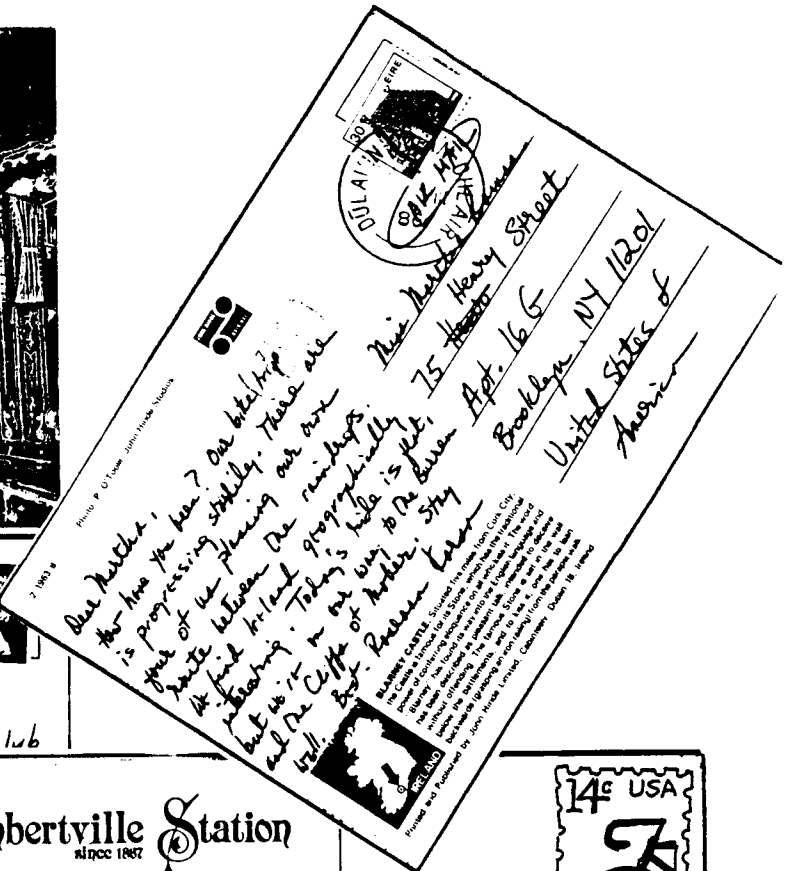 30p
EIRE
Miss Martha
75 Henry Street
Apt. 16 G
Brooklyn, NY 11201
United States of
America
Photo P O'Toole John Hinde Studios
Dear Martha,
How have you been? Our bike trip
is progressing steadily. There are
four of us planning our own
route between the raindrops.
We find Ireland geographically
interesting. Today's ride is flat,
but we're on our way to the Burren
and the Cliffs of Moher. Stay
well. Best.
BLARNEY CASTLE, Situated five miles from Cork City,
the Castle is famous for its Stone which has the traditional
power of conferring eloquence on all who kiss it. The word
'Blarney' has found its way into the English language and
has been described as pleasant talk, intended to deceive
without offending. The famous Stone is set in the wall
below the battlements, and to kiss it, one has to lean
backwards (grasping an iron railing) from the parapet walk.
IRELAND
Printed and Published by John Hinde Limited, Cabinteely, Dublin 18, Ireland
lub
bertville Station
since 1867
14c USA